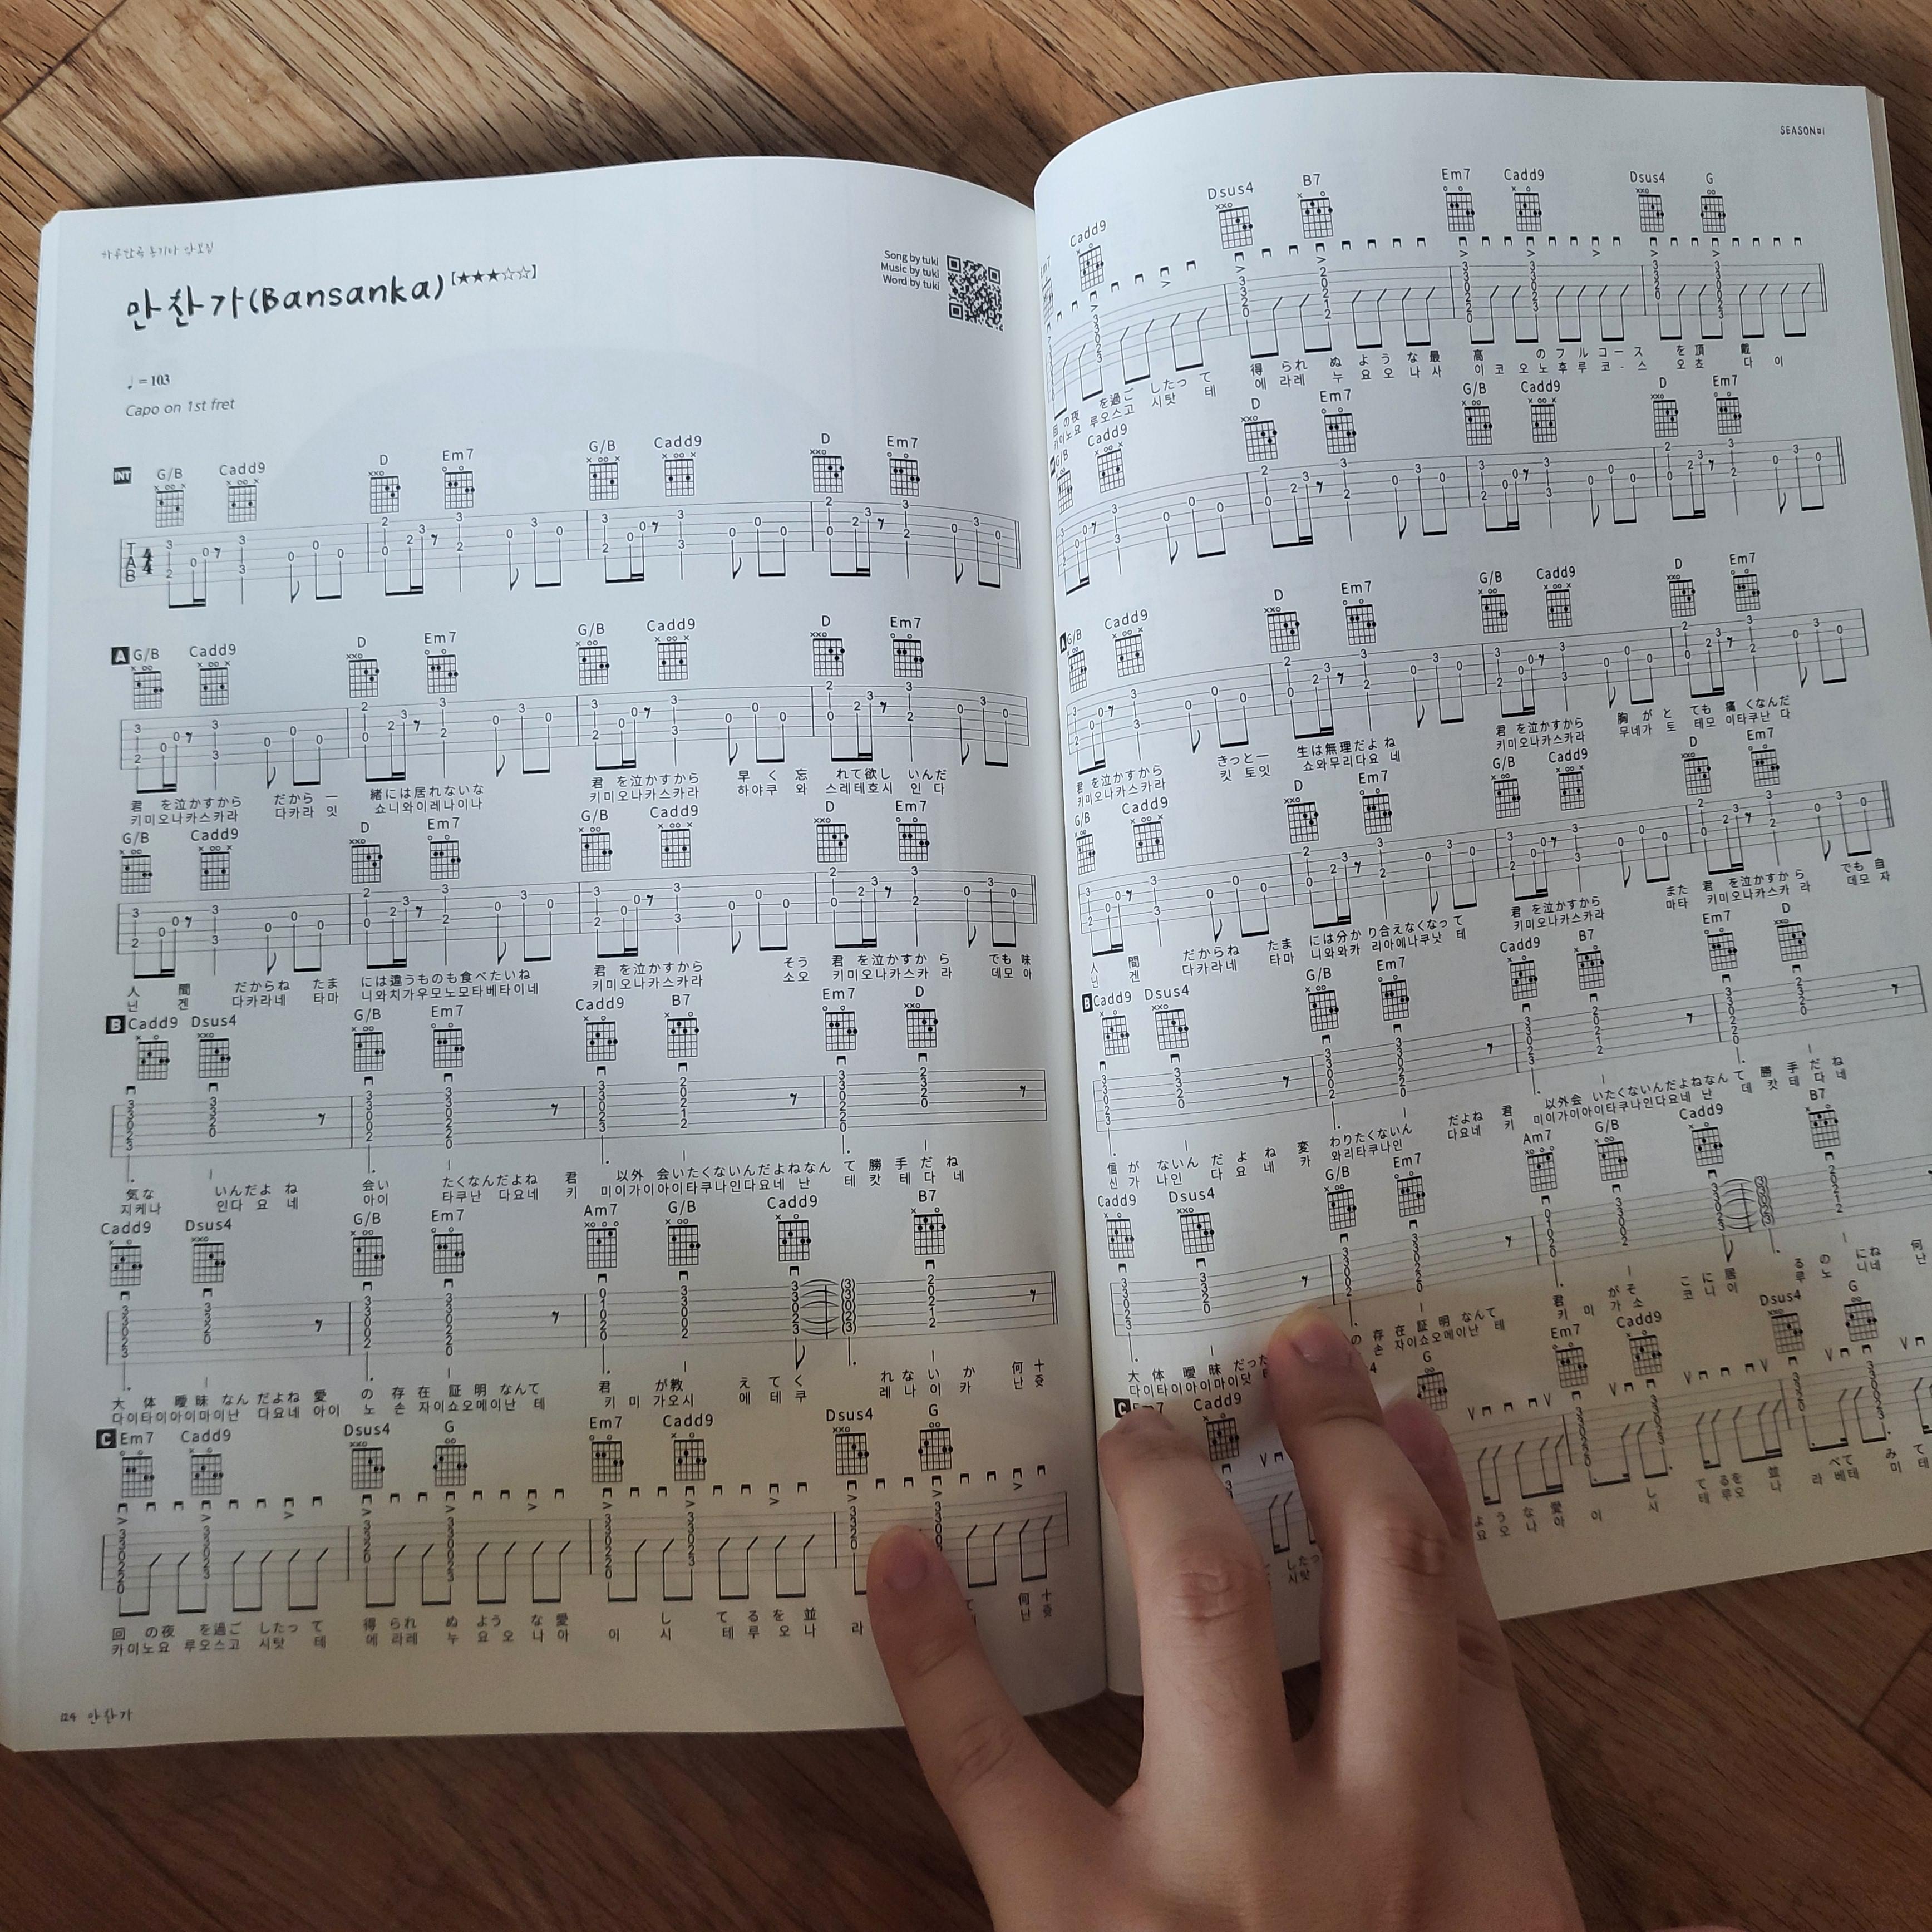 만찬가(Bansanka)【★★★☆☆】
Song by tuki
Music by tuki
Word by tuki
♩= 103
Capo on 1st fret
INT G/B Cadd9 D Em7 G/B Cadd9 D Em7
TAB 4/4
A G/B Cadd9 D Em7 G/B Cadd9 D Em7
君 を泣かすから だから 一 緒には居れないな 君 を泣かすから 早 く 忘 れて欲し いんだ
키미오나카스카라 다카라 잇 쇼니와이레나이나 키미오나카스카라 하야쿠 와 스레테호시 인 다
G/B Cadd9 D Em7 G/B Cadd9 D Em7
人 間 だからね たま には違うものも食べたいね 君 を泣かすから そう 君 を泣かすか ら でも 味
닌 겐 다카라네 타마 니와치가우모노모타베타이네 키미오나카스카라 소오 키미오나카스카 라 데모 아
B Cadd9 Dsus4 G/B Em7 Cadd9 B7 Em7 D
気な いんだよ ね 会い たくなんだよね 君 以外 会いたくないんだよねなん て 勝 手 だ ね
지케나 인다 요 네 아이 타쿠난 다요네 키 미이가이아이타쿠나인다요네 난 테 캇 테 다 네
Cadd9 Dsus4 G/B Em7 Am7 G/B Cadd9 B7
大 体 曖昧 なん だよね 愛 の 存 在 証 明 なんて 君 が教 え て く れ な い か 何 十
다이타이아이마이난 다요네 아이 노 손 자이쇼오메이난 테 키 미 가오시 에 테 쿠 레 나 이 카 난 쥿
C Em7 Cadd9 Dsus4 G Em7 Cadd9 Dsus4 G
回 の夜 を過ご したっ て 得 られ ぬ よう な 愛 い し て る を 並 何 十
카이노요 루오스고 시탓 테 에 라레 누 요 오 나 아 이 시 테 루 오 나 라 난 쥿
124 만찬가
SEASON#1
Cadd9 Dsus4 B7 Em7 Cadd9 Dsus4 G
回 の夜 を過ご したって 得 られ ぬ よ う な 最 高 の フ ル コ ー ス を 頂 戴
카이노요 루오스고 시탓 테 에 라레 누 요 오 나 사 이 코 오 노 후 루 코 - 스 오 쵸 다 이
G/B Cadd9 D Em7 G/B Cadd9 D Em7
A G/B Cadd9 D Em7 G/B Cadd9 D Em7
君 を泣かすから きっと一 生は無理だよ ね 君 を泣かすから 胸 が と ても 痛 くなんだ
키미오나카스카라 킷 토잇 쇼와무리다요 네 키미오나카스카라 무네가 토 테모 이타쿠난 다
G/B Cadd9 D Em7 G/B Cadd9 D Em7
人 間 だからね たま には分か り合えなくなっ て 君 を泣かすから また 君 を泣かすから でも 自
닌 겐 다카라네 타마 니와와카 리아에나쿠낫 테 키미오나카스카라 마타 키미오나카스카 라 데모 자
B Cadd9 Dsus4 G/B Em7 Cadd9 B7 Em7 D
信 が ないん だ よ ね 変 わりたくないん だよね 君 以外会 いたくないんだよねなん て 勝 手 だ ね
신 가 나인 다 요 네 카 와리타쿠나인 다요네 키 미이가이아이타쿠나인다요네 난 데 캇 테 다 네
Cadd9 Dsus4 G/B Em7 Am7 G/B Cadd9 B7
大 体 曖 昧 だった の 存 在 証 明 なんて 君 がそ こ に 居 る の にね 何
다이타이아이마이닷 손 자이쇼오메이난 테 키 미 가 소 코 니 이 루 노 니네 난
C Em7 Cadd9 G Em7 Cadd9 Dsus4 G
したっ よ う な 愛 し て るを 並 べて み て
시탓 요 오 나 아 이 시 테 루오 나 라 베테 미 테